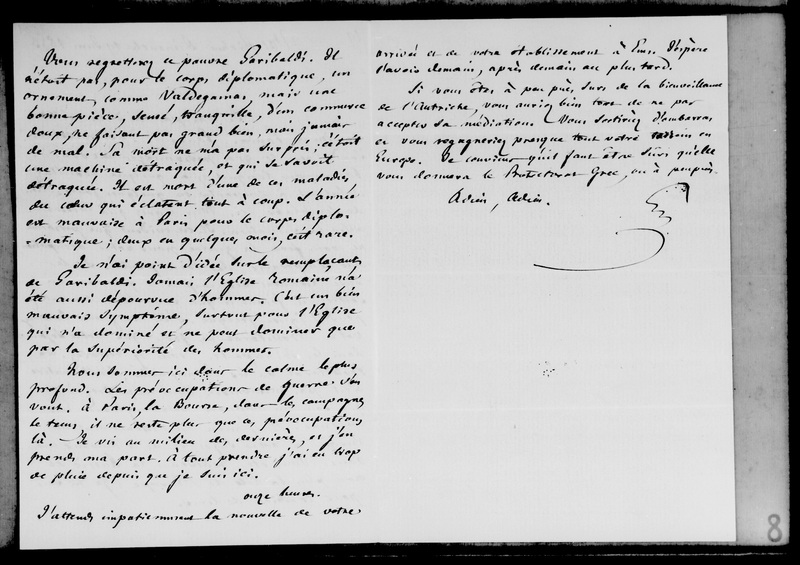 Vous regretterez ce pauvre Garibaldi. Il
n'étoit pas, pour le corps diplomatique, un
ornement, comme Valdegamas, mais une
bonne pièce, sensé, tranquille, d'un commerce
doux, ne faisant pas grand bien, mais jamais
de mal. Sa mort ne m'a pas surpris ; c'étoit
une machine détraquée, et qui se savoit
détraquée. Il est mort d'une de ces maladies
du cœur qui éclatent tout à coup. L'année
est mauvaise à Paris pour le corps diplo-
-matique ; deux en quelques mois, c'est rare.
Je n'ai point d'idée sur le remplaçant
de Garibaldi. Jamais l'Eglise Romaine n'a
été aussi dépourvue d'hommes. C'est un bien
mauvais symptôme, surtout pour l'Eglise
qui n'a dominé et ne peut dominer que
par la supériorité des hommes.
Nous sommes ici dans le calme le plus
profond. Les préoccupations de guerre s'en
vont. à Paris, la Bourse, dans les campagnes
le tems, il ne reste plus que ces préoccupations
là. Je vis au milieu des dernières, et j'en
prends ma part. à tout prendre j'ai eu trop
de pluie depuis que je suis ici.
onze heures.
J'attends impatiemment la nouvelle de votre
arrivée et de votre établissement à Ems. J'espère
l'avoir demain, après demain au plus tard.
Si vous êtes à peu près surs de la bienveillance
de l'Autriche, vous auriez bien tort de ne pas
accepter sa médiation. Vous sortiriez d'embarras
et vous regagneriez presque tout votre terrain en
Europe. Je conviens qu'il faut être surs qu'elle
vous donnera le Protectorat Grec, ou à peu près.
Adieu, Adieu.
8